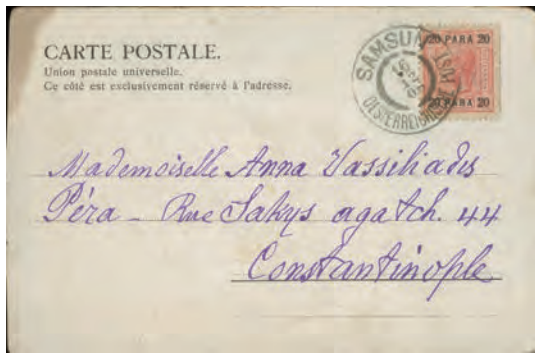 CARTE POSTALE.
Union postale universelle.
Ce côté est exclusivement réservé à l'adresse.
SAMSUN
20 PARA 20
20 PARA 20
Mademoiselle Anna Vassiliadis
Péra - Rue Sakys agatch. 44
Constantinople